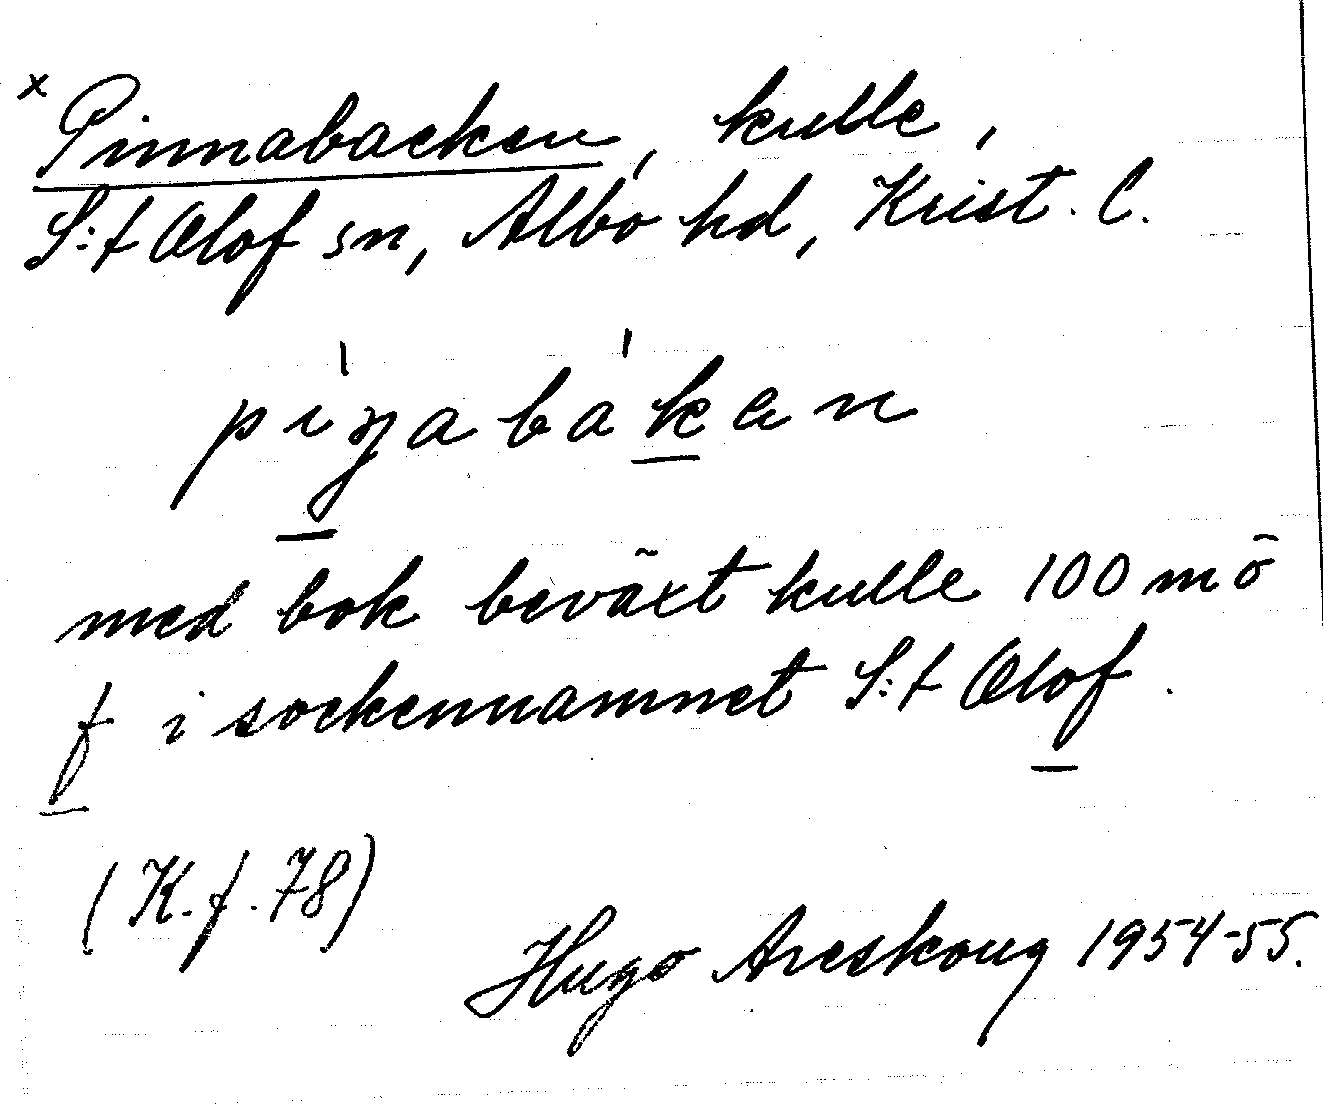 x Pinnabacken, kulle,
S:t Olof sn, Albo hd, Krist. l.
pi'ŋabá'kan
med bok beväxt kulle 100 m ö
f i sockennamnet S:t Olof.
(K.f. 78)
Hugo Areskoug 1954-55.